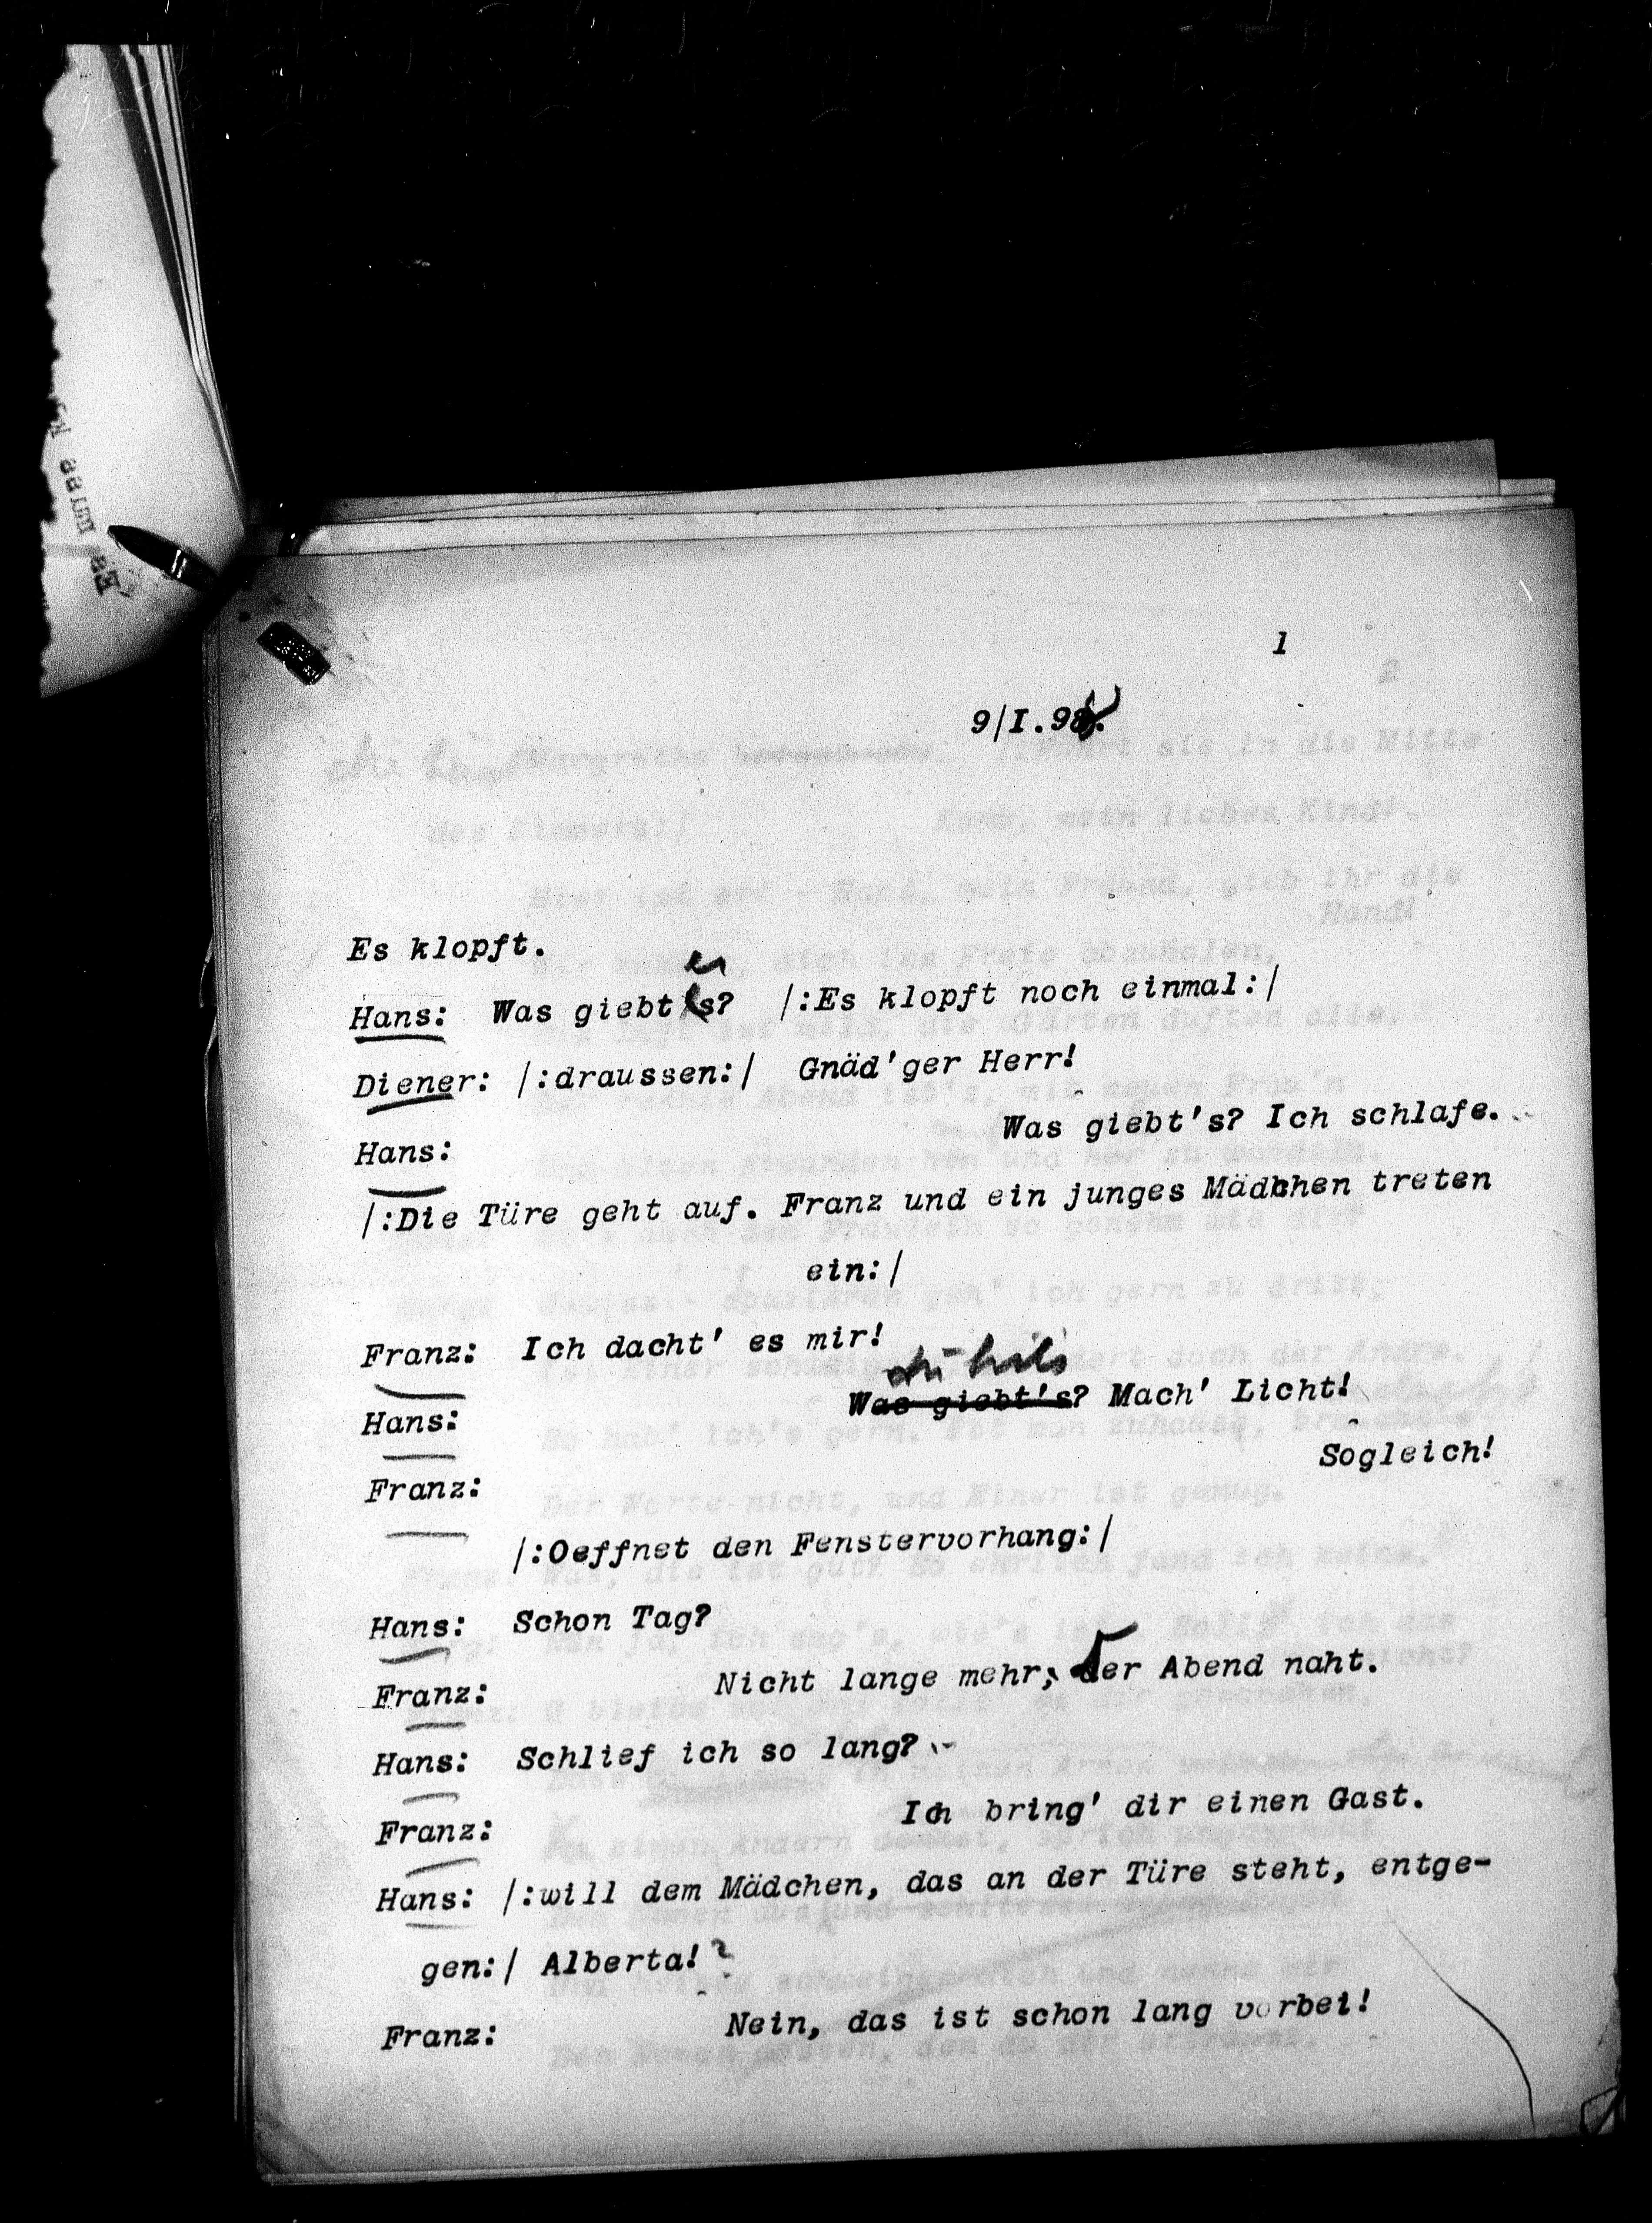 1
9/I.98.
Es klopft.
Hans: Was giebt es? /:Es klopft noch einmal:/
Diener: /:draussen:/ Gnäd'ger Herr!
Was giebt's? Ich schlafe.
Hans:
/:Die Türe geht auf. Franz und ein junges Mädchen treten
ein:/
Franz: Ich dacht' es mir!
Was giebt's? Mach' Licht!
Hans:
Sogleich!
Franz:
/:Oeffnet den Fenstervorhang:/
Hans: Schon Tag?
Franz: Nicht lange mehr, der Abend naht.
Hans: Schlief ich so lang?
Franz: Ich bring' dir einen Gast.
Hans: /:will dem Mädchen, das an der Türe steht, entge-
gen:/ Alberta!?
Franz: Nein, das ist schon lang vorbei!